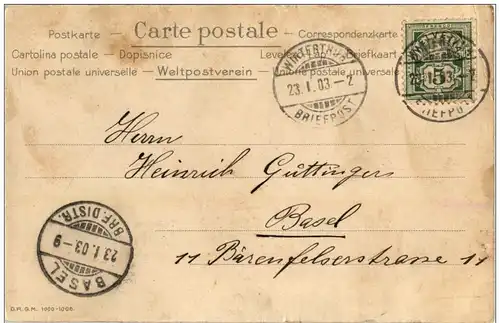 Postkarte — Carte postale — Correspondenzkarte
Cartolina postale — Dopisnice
Briefkaart
Union postale universelle — Weltpostverein — postale universale
WINTERTHUR
23.I.03-7
BRIEFPOST
5
Herrn
Heinrich Güttingers
Basel
11 Bärenfelserstrasse 11
BASEL
23.I.03-9
BRF.DISTR.